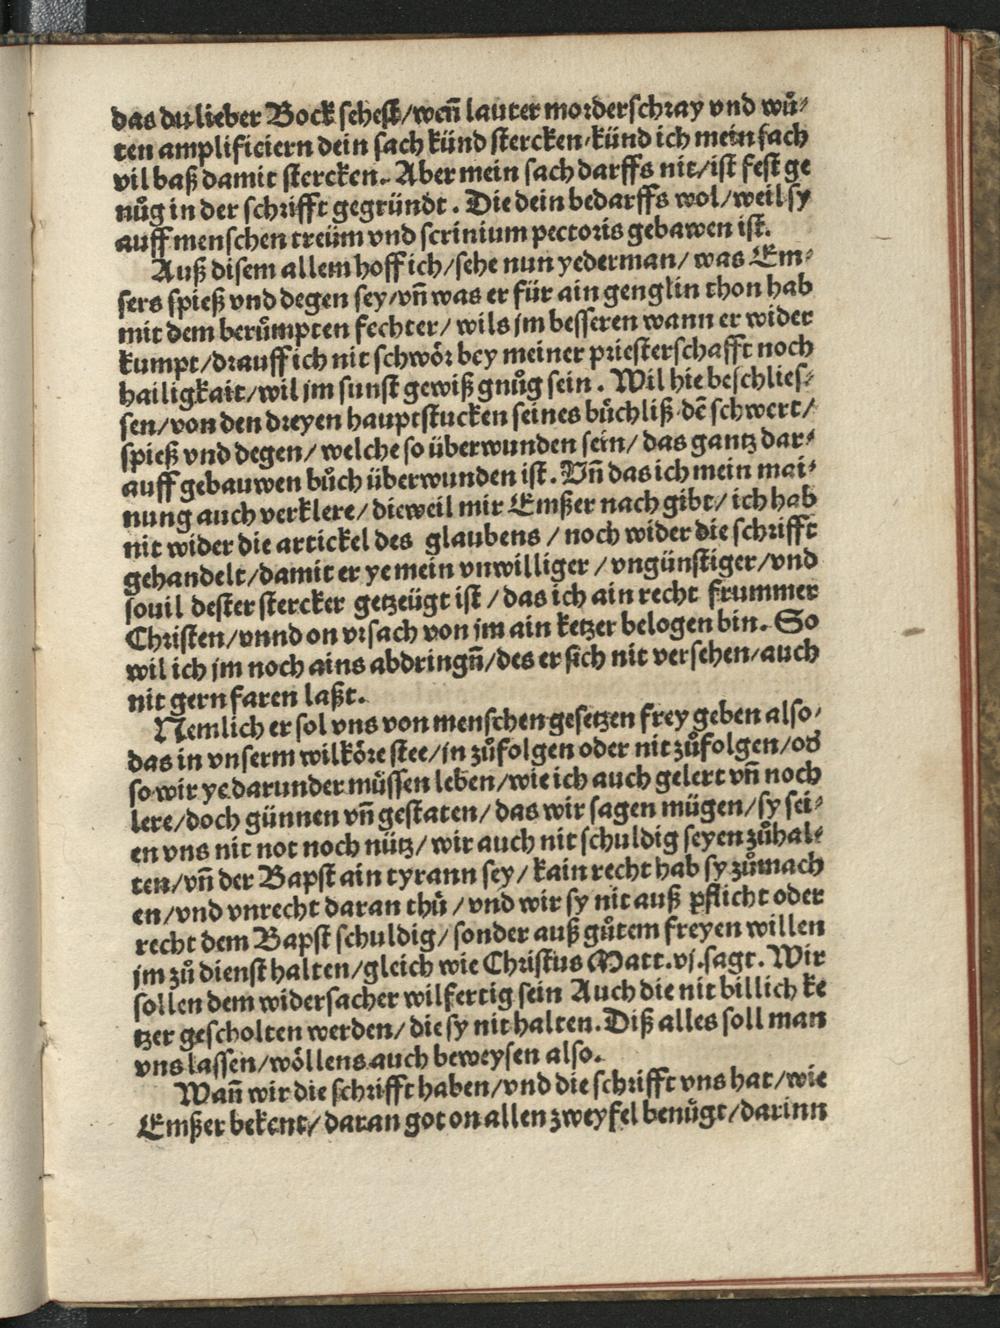 das du lieber Bock sehest/wen̄ lauter morderschray vnd wuͤ⸗
ten amplificiern dein sach künd stercken/künd ich mein sach
vil baß damit stercken. Aber mein sach darffs nit/ist fest ge
nuͦg in der schrifft gegründt. Die dein bedarffs wol/weil sy
auff menschen treüm vnd scrinium pectoris gebawen ist.
Auß disem allem hoff ich/sehe nun yederman/was Em⸗
sers spieß vnd degen sey/vn̄ was er für ain genglin thon hab
mit dem beruͤmpten fechter/wils jm besseren wann er wider
kumpt/drauff ich nit schwoͤr bey meiner priesterschafft noch
hailigkait/wil jm sunst gewiß gnuͦg sein. Wil hie beschlies⸗
sen/von den dreyen hauptstucken seines buͤchliß dē schwert/
spieß vnd degen/welche so überwunden sein/das gantz dar⸗
auff gebauwen buͦch überwunden ist. Vn̄ das ich mein mai⸗
nung auch verklere/dieweil mir Emßer nach gibt/ich hab
nit wider die artickel des glaubens/noch wider die schrifft
gehandelt/damit er ye mein vnwilliger/vngünstiger/vnd
souil dester stercker getzeügt ist/das ich ain recht frummer
Christen/vnnd on vrsach von jm ain ketzer belogen bin. So
wil ich jm noch ains abdringn̄/des er sich nit versehen/auch
nit gern faren laßt.
Nemlich er sol vns von menschen gesetzen frey geben also/
das in vnserm wilkoͤre stee/jn zuͦfolgen oder nit zuͦfolgen/od̓
so wir ye darunder muͤssen leben/wie ich auch gelert vn̄ noch
lere/doch günnen vn̄ gestaten/das wir sagen mügen/sy sei⸗
en vns nit not noch nütz/wir auch nit schuldig seyen zuͦhal⸗
ten/vn̄ der Bapst ain tyrann sey/kain recht hab sy zuͦmach
en/vnd vnrecht daran thuͤ/vnd wir sy nit auß ꝑflicht oder
recht dem Bapst schuldig/sonder auß guͦtem freyen willen
jm zuͦ dienst halten/gleich wie Christus Matt.vj.sagt. Wir
sollen dem widersacher wilfertig sein Auch die nit billich ke
tzer gescholten werden/die sy nit halten. Diß alles soll man
vns lassen/woͤllens auch beweysen also.
Wan̄ wir die schrifft haben/vnd die schrifft vns hat/wie
Emßer bekent/daran got on allen zweyfel benuͤgt/darinn